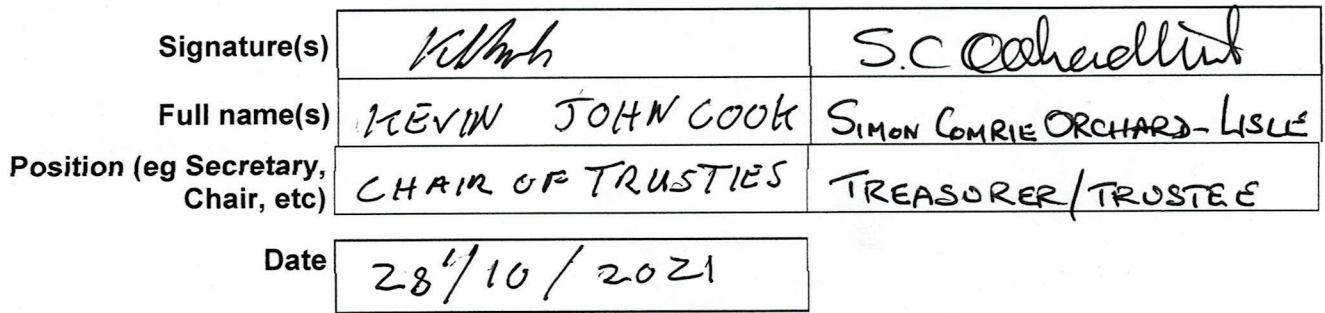 Signature(s) S.C Orchard-Lisle
Full name(s) KEVIN JOHN COOK SIMON COMRIE ORCHARD-LISLE
Position (eg Secretary, CHAIR OF TRUSTIES TREASURER/TRUSTEE
Chair, etc)
Date 28/10/2021